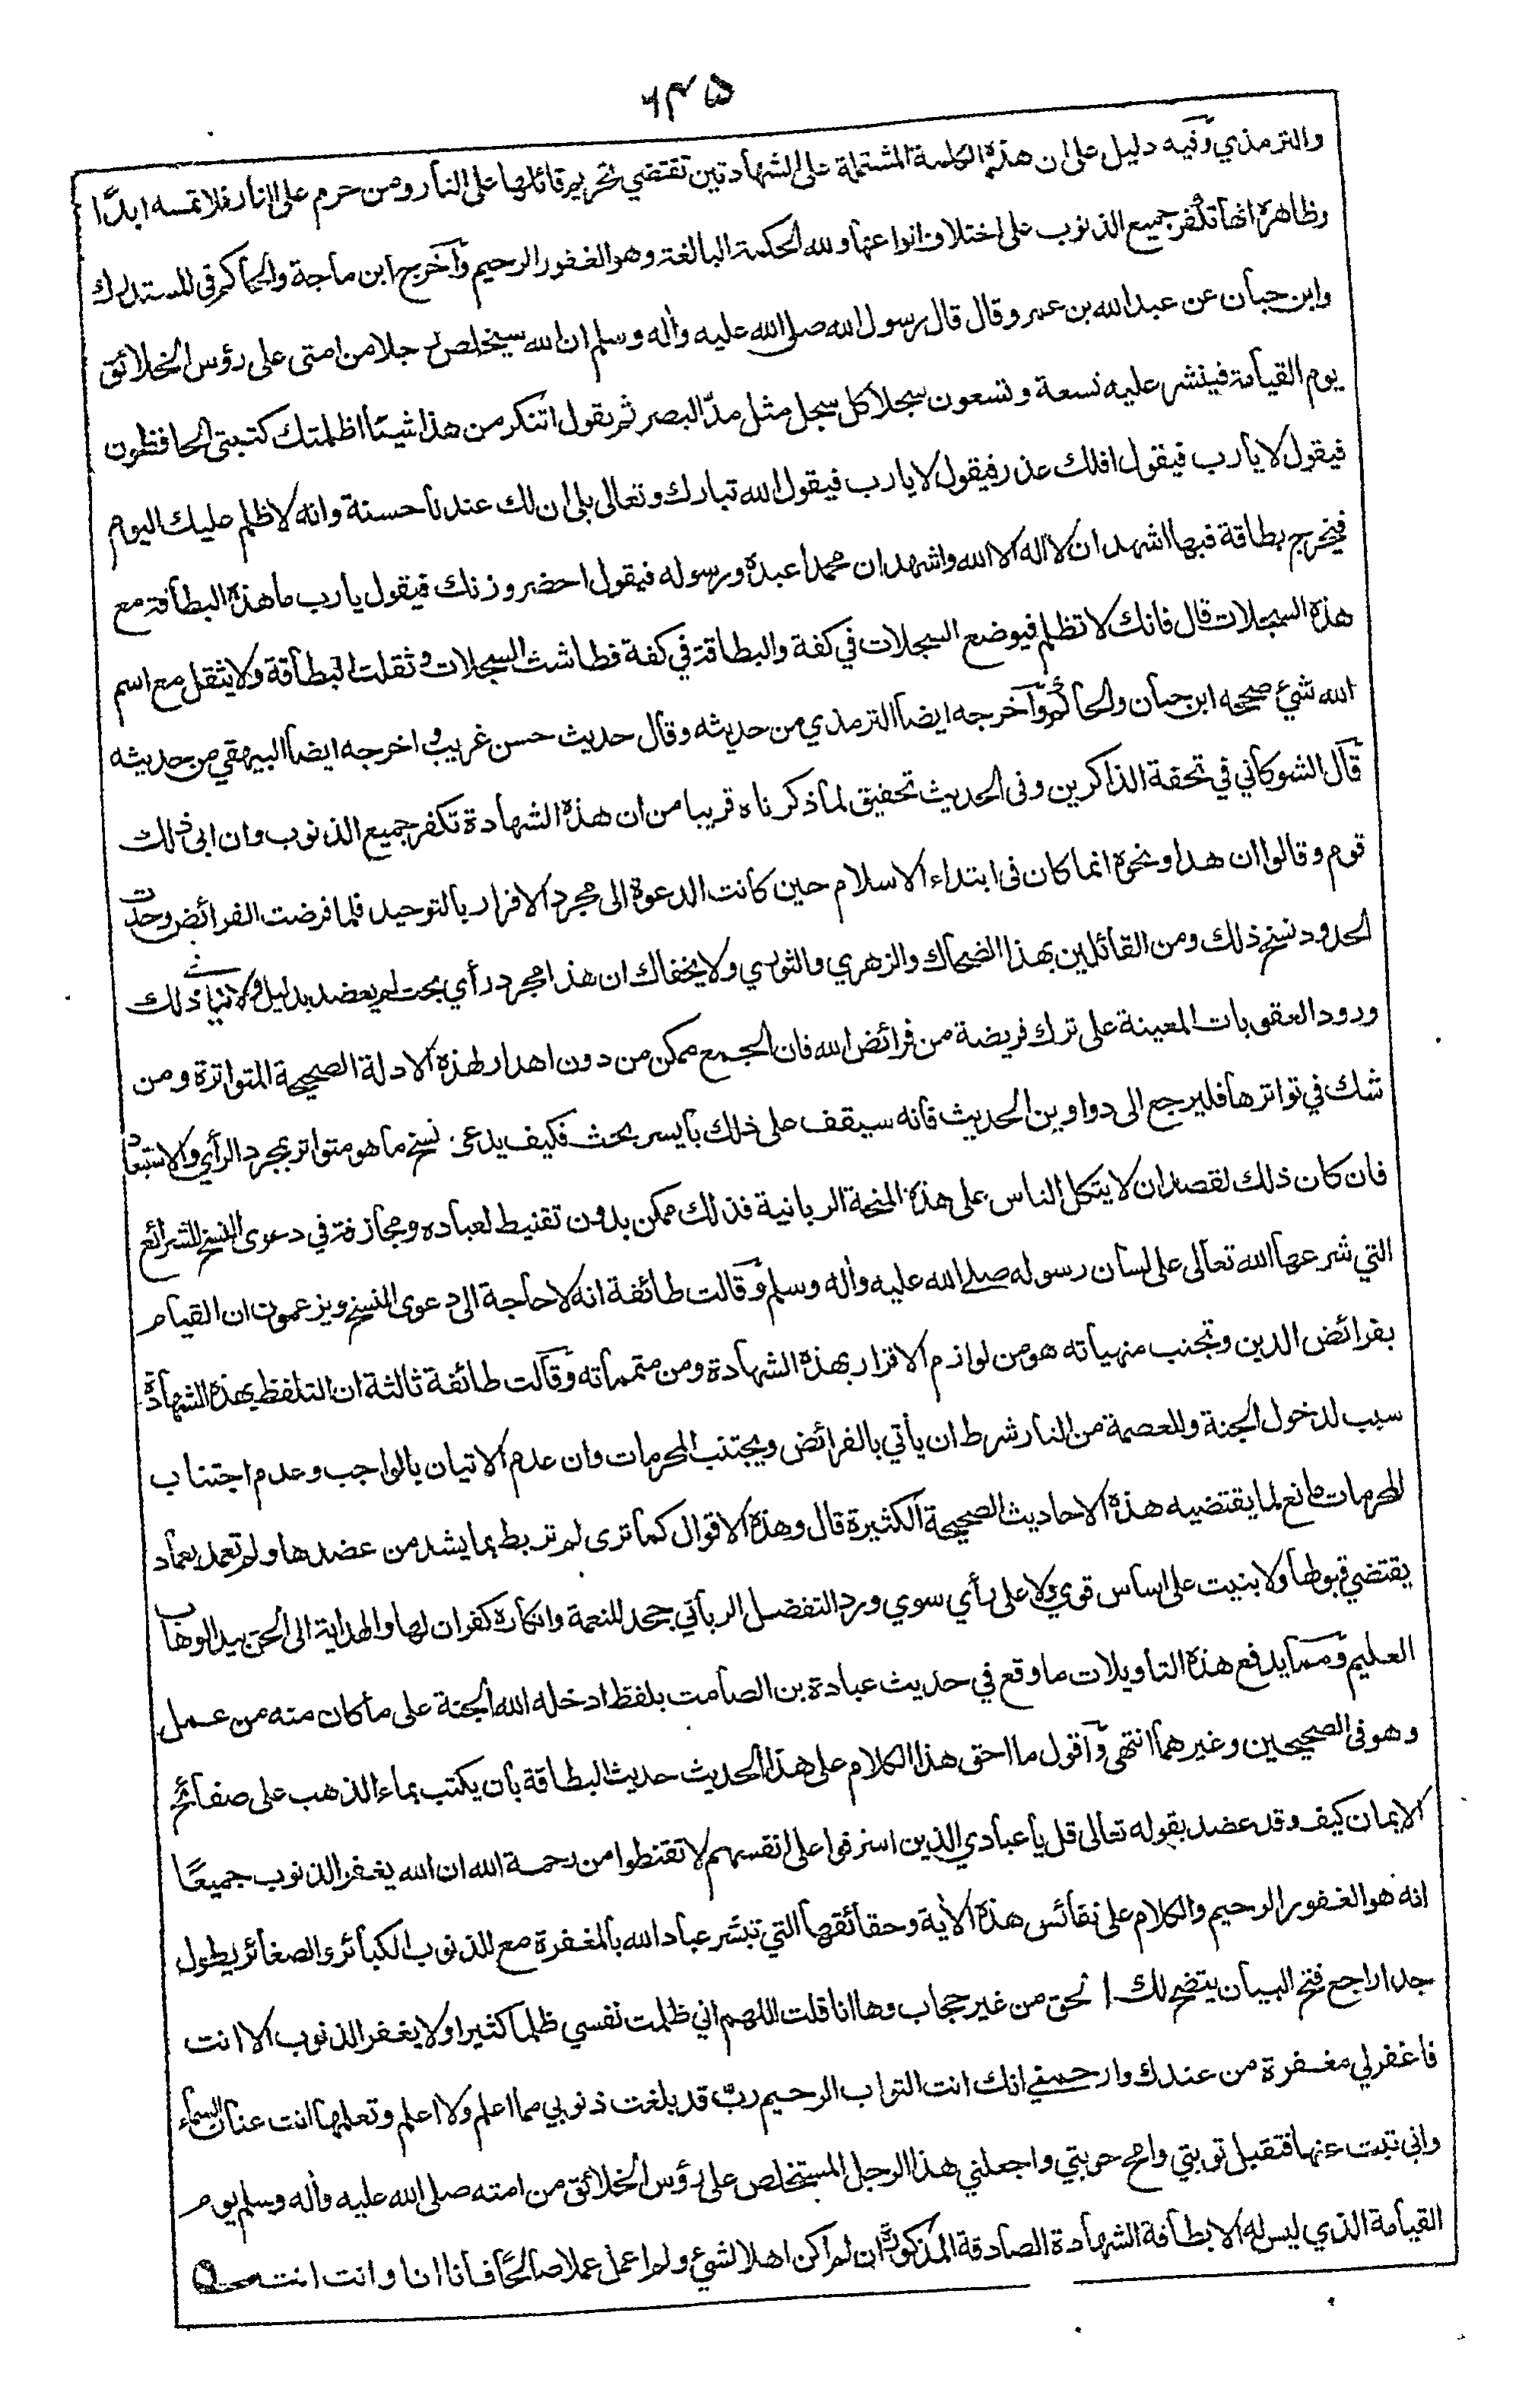 ٦٣٥
والترمذي وفيه دليل على ان هذه الكلمة المشتملة على الشهادتين تقتضي تحريم قائلها على النار ومن حرم على النار فلا تمسه ابدًا
وظاهره انها تكفر جميع الذنوب على اختلاف انواعها ولله الحكمة البالغة وهو الغفور الرحيم وآخرج ابن ماجة والحاكم في المستدرك
وابن حبان عن عبد الله بن عمرو قال قال رسول الله صلى الله عليه واله وسلم ان الله سيخلص رجلا من امتى على رؤس الخلائق
يوم القيامة فينشر عليه تسعة وتسعون سجلا كل سجل مثل مدّ البصر ثم يقول اتنكر من هذا شيئا اظلمتك كتبتى الحافظون
فيقول لا يارب فيقول افلك عذر فيقول لا يارب فيقول الله تبارك وتعالى بلى ان لك عندنا حسنة وانه لا ظلم عليك اليوم
فيخرج بطاقة فيها اشهد ان لا اله الا الله واشهد ان محمدا عبده ورسوله فيقول احضر وزنك فيقول يارب ما هذه البطاقة مع
هذه السجلات قال فانك لا تظلم فيوضع السجلات في كفة والبطاقة في كفة فطاشت السجلات وثقلت البطاقة ولا يثقل مع اسم
الله شيء صححه ابن حبان والحاكم وآخرجه ايضا الترمذي من حديثه وقال حديث حسن غريب واخرجه ايضا البيهقي من حديثه
قآل الشوكاني في تحفة الذاكرين وفى الحديث تحقيق لما ذكرناه قريبا من ان هذه الشهادة تكفر جميع الذنوب وان ابى ذلك
قوم وقالوا ان هذا ونحوه انما كان فى ابتداء الاسلام حين كانت الدعوة الى مجرد الاقرار بالتوحيد فلما فرضت الفرائض وحدت
الحدود نسخ ذلك ومن القائلين بهذا الضحاك والزهري والثوري ولا يخفاك ان هذا مجرد رأي بحت لم يعضد بدليل ولا ينافي ذلك
ورود العقوبات المعينة على ترك فريضة من فرائض الله فان الجمع ممكن من دون اهدار لهذه الادلة الصحيحة المتواترة ومن
شك في تواترها فليرجع الى دواوين الحديث فانه سيقف على ذلك بأيسر بحث فكيف يدعى نسخ ما هو متواتر بمجرد الرأي والاستبعاد
فان كان ذلك لقصد ان لا يتكل الناس على هذه المنحة الربانية فذلك ممكن بدون تقنيط لعباده ومجازفة في دعوى النسخ للشرائع
التي شرعها الله تعالى على لسان رسوله صلى الله عليه واله وسلم وقآلت طائفة انه لا حاجة الى دعوى النسخ ويزعمون ان القيام
بفرائض الدين وتجنب منهياته هو من لوازم الاقرار بهذه الشهادة ومن متمماته وقآلت طائفة ثالثة ان التلفظ بهذه الشهادة
سبب لدخول الجنة وللعصمة من النار شرط ان يأتي بالفرائض ويجتنب المحرمات وان عدم الاتيان بالواجب وعدم اجتناب
المحرمات مانع لما يقتضيه هذه الاحاديث الصحيحة الكثيرة قال وهذه الاقوال كما ترى لم تربط بما يشد من عضدها ولم تعمد بعماد
يقتضي قبولها ولا بنيت على اساس قوي ولا على رأي سوي ورد التفضل الرباني جحد للنعمة وانكاره كفران لها والهداية الى الحق بيد الوهاب
العليم وممآ يدفع هذه التأويلات ما وقع في حديث عبادة بن الصامت بلفظ ادخله الله الجنة على ما كان منه من عمل
وهو فى الصحيحين وغيرهما انتهى وآقول ما احق هذا الكلام على هذا الحديث حديث البطاقة بان يكتب بماء الذهب على صفائح
الايمان كيف وقد عضد بقوله تعالى قل يا عبادي الذين اسرفوا على انفسهم لا تقنطوا من رحمة الله ان الله يغفر الذنوب جميعًا
انه هو الغفور الرحيم والكلام على نفائس هذه الأية وحقائقها التي تبشر عباد الله بالمغفرة مع للذنوب الكبائر والصغائر يطول
جدا راجع فتح البيان يتضح لك الحق من غير حجاب وها انا قلت اللهم اني ظلمت نفسي ظلما كثيرا ولا يغفر الذنوب الا انت
فاغفر لي مغفرة من عندك وارحمني انك انت التواب الرحيم ربّ قد بلغت ذنوبي مما اعلم ولا اعلم وتعلمها انت عنان السماء
وانى تبت عنها فتقبل توبتي وامح حوبتي واجعلني هذا الرجل المستخلص على رؤس الخلائق من امته صلى الله عليه واله وسلم يوم
القيامة الذي ليس له الا بطاقة الشهادة الصادقة المذكورة ان لم اكن اهلا لشيء ولم اعمل عملا صالحًا فانا انا وانت انت